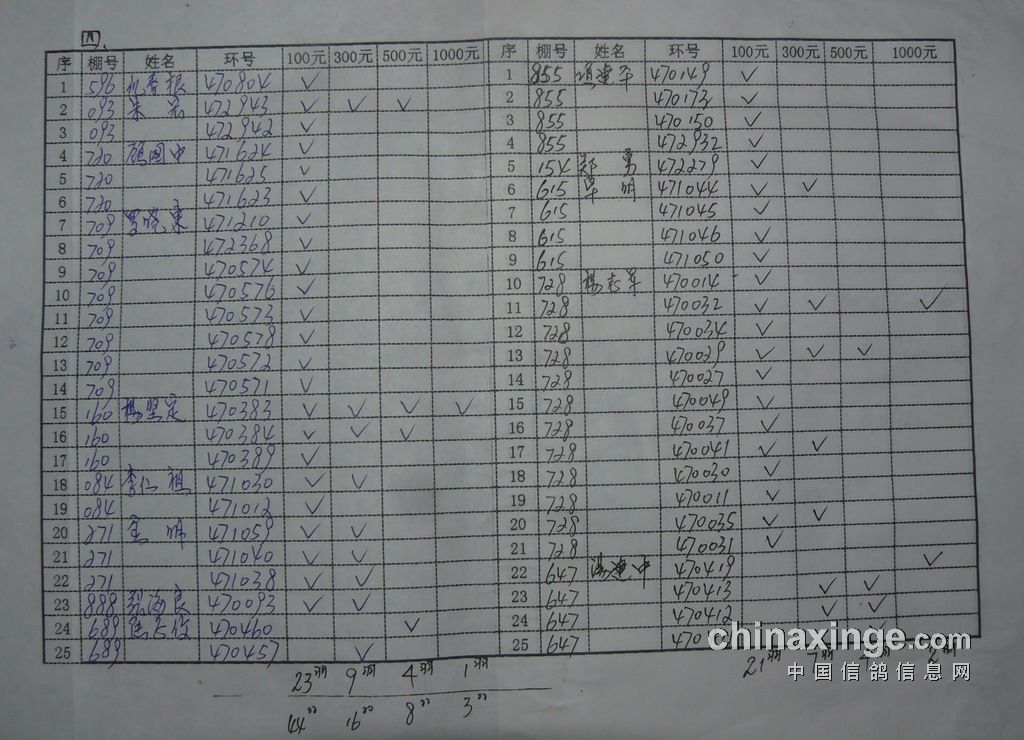 四、
序 棚号 姓名 环号 100元 300元 500元 1000元 序 棚号 姓名 环号 100元 300元 500元 1000元
1 596 470804 ✓ 1 855 470149 ✓
2 093 朱 472943 ✓ ✓ ✓ 2 855 470173 ✓
3 093 472942 ✓ 3 855 470150 ✓
4 720 顾国中 471624 ✓ 4 855 472932 ✓
5 720 471625 ✓ 5 154 郑 勇 472279 ✓
6 720 471623 ✓ 6 615 明 471044 ✓ ✓
7 709 471210 ✓ 7 615 471045 ✓
8 709 472368 ✓ 8 615 471046 ✓
9 709 470574 ✓ 9 615 471050 ✓
10 709 470576 ✓ 10 728 杨志军 470014 ✓
11 709 470573 ✓ 11 728 470032 ✓ ✓ ✓
12 709 470578 ✓ 12 728 470034 ✓
13 709 470572 ✓ 13 728 470029 ✓ ✓ ✓
14 709 470571 ✓ 14 728 470027 ✓
15 160 杨坚定 470383 ✓ ✓ ✓ ✓ 15 728 470049 ✓
16 160 470384 ✓ ✓ ✓ 16 728 470037 ✓
17 160 470389 ✓ 17 728 470041 ✓ ✓
18 084 李仁祖 471030 ✓ ✓ 18 728 470030 ✓
19 084 471012 ✓ 19 728 470011 ✓
20 271 金 明 471059 ✓ ✓ 20 728 470035 ✓ ✓
21 271 471040 ✓ ✓ 21 728 470031 ✓
22 271 471038 ✓ ✓ 22 647 470419 ✓
23 888 郑海良 470093 ✓ ✓ 23 647 470413 ✓ ✓
24 689 470460 ✓ 24 647 470412 ✓ ✓
25 689 470457 ✓ 25 647
23羽 9羽 4羽 1羽 21羽
44〃 16〃 8〃 3〃
chinaxinge.com
中国信鸽信息网